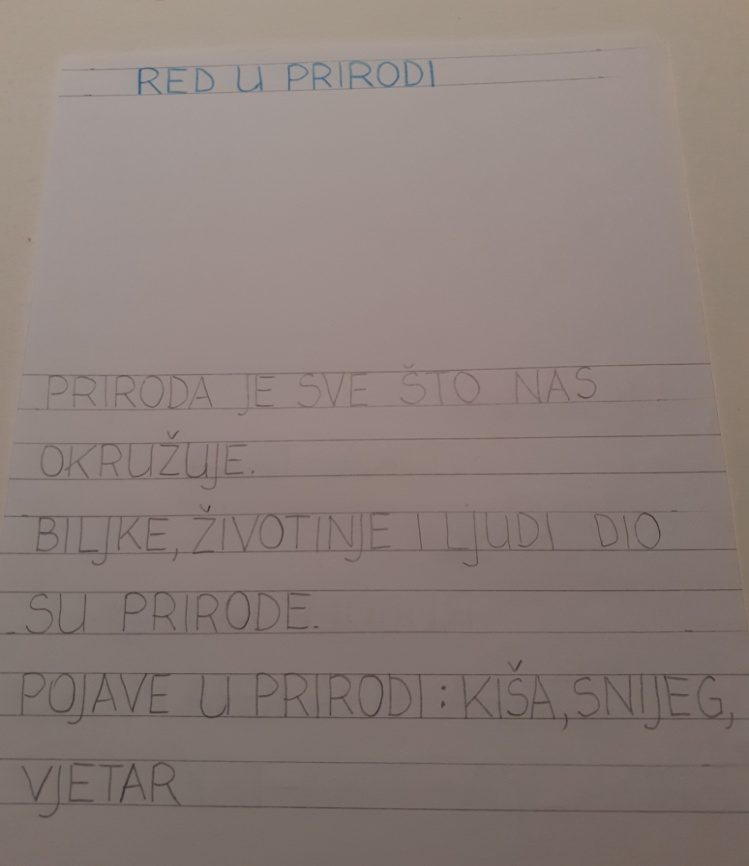 RED U PRIRODI
PRIRODA JE SVE ŠTO NAS
OKRUŽUJE.
BILJKE, ŽIVOTINJE I LJUDI DIO
SU PRIRODE.
POJAVE U PRIRODI: KIŠA, SNIJEG,
VJETAR